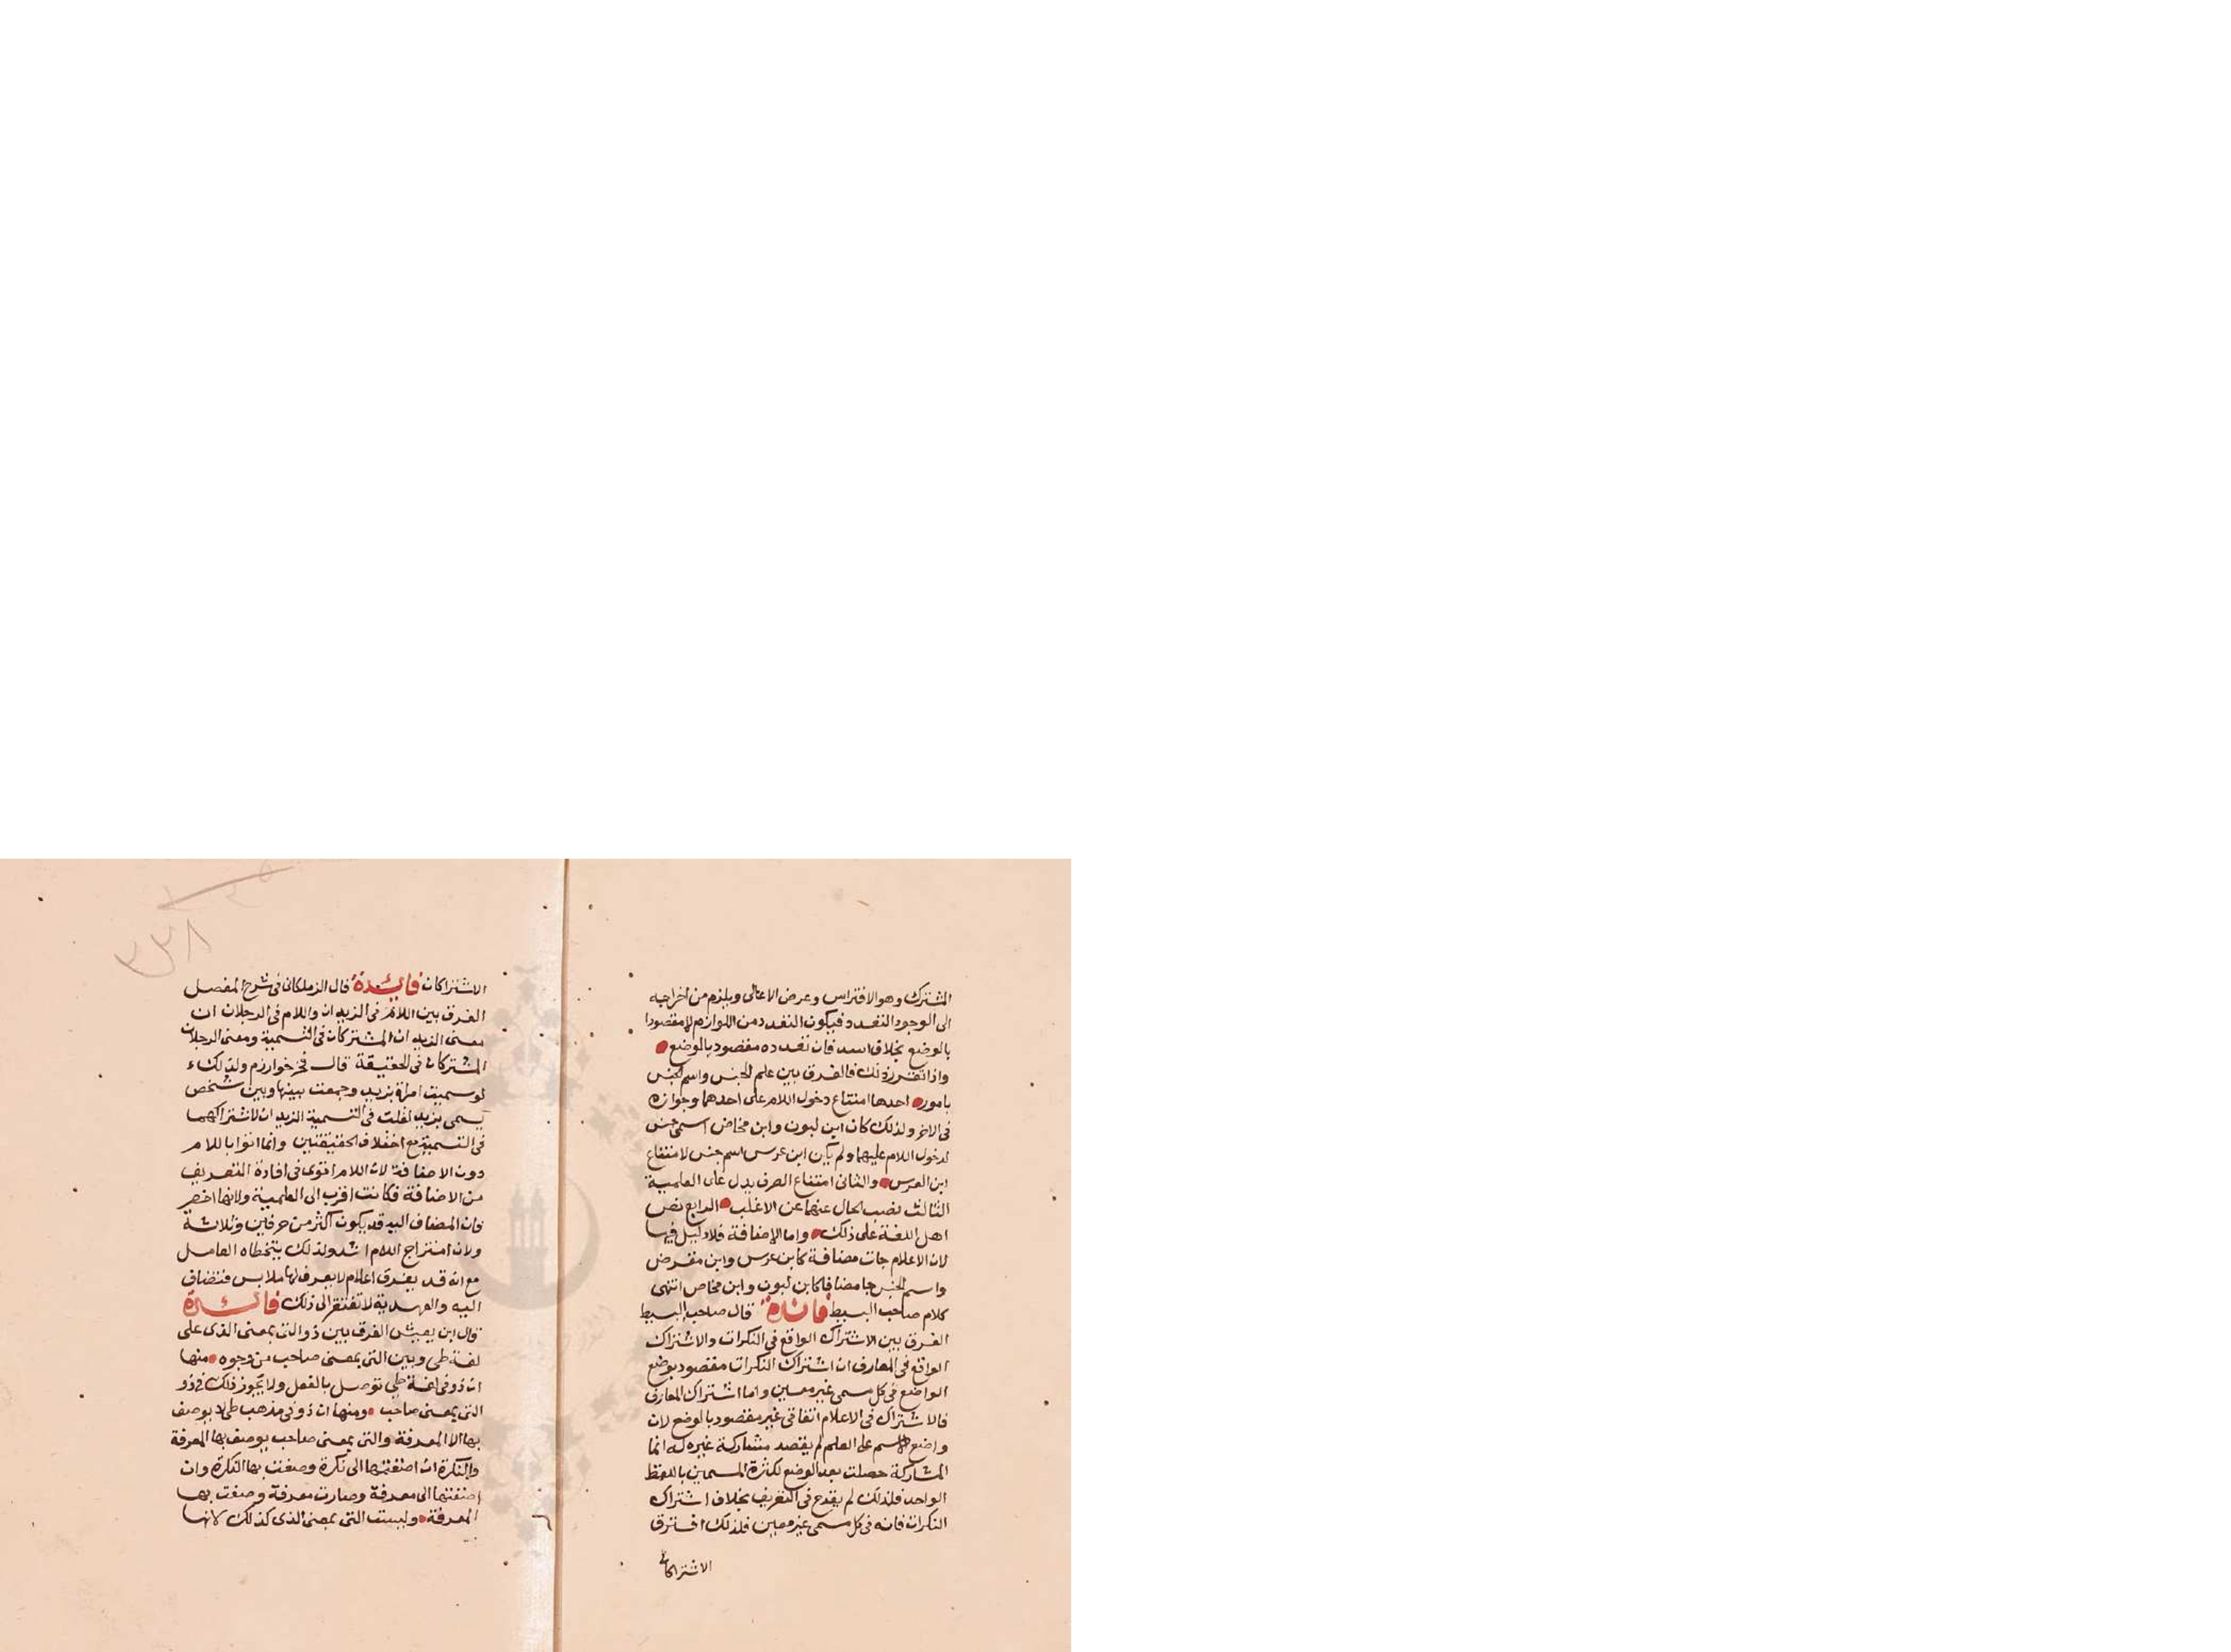 المشترك وهو الافتراس وعرض الاعالى ويلزم من اخراجه
الى الوجود التعدد فيكون التعدد من اللوازم لا مقصودا
بالوضع بخلاف اسد فان تعدده مقصود بالوضع
واذا تقرر ذلك فالفرق بين علم الجنس واسم الجنس
بامور احدها امتناع دخول اللام على احدهما وجوازه
فى الاخر ولذلك كان ابن لبون وابن مخاض اسمى جنس
لدخول اللام عليهما ولم يكن ابن عرس اسم جنس لامتناع
ابن العرس والثانى امتناع الصرف يدل على العلمية
الثالث نصب الحال عنها عن الاغلب الرابع نص
اهل اللغة على ذلك واما الاضافة فلا دليل فيها
لان الاعلام جات مضافة كابن عرس وابن مقرض
واسم الجنس جا مضافا كابن لبون وابن مخاض انتهى
كلام صاحب البسيط فائدة قال صاحب البسيط
الفرق بين الاشتراك الواقع فى النكرات والاشتراك
الواقع فى المعارف ان اشتراك النكرات مقصود بوضع
الواضع فى كل مسمى غير معين واما اشتراك المعارف
فالاشتراك فى الاعلام اتفاقى غير مقصود بالوضع لان
واضع الاسم على العلم لم يقصد مشاركة غيره له انما
المشاركة حصلت بعد الوضع لكثرة المسمين باللفظ
الواحد فلذلك لم يقدح فى التعريف بخلاف اشتراك
النكرات فانه فى كل مسمى غير معين فلذلك افترق
الاشتراكان
الاشتراكان فائدة قال الزملكانى فى شرح المفصل
الفرق بين اللام فى الزيدان واللام فى الرجلان ان
معنى الزيدان المشتركان فى التسمية ومعنى الرجلان
المشتركان فى الحقيقة قال فخر خوارزم ولذلك
لو سميت امراة بزيد وجمعت بينها وبين شخص
يسمى بزيد لقلت فى التسمية الزيدان لاشتراكهما
فى التسمية مع اختلاف الحقيقتين وانما اتوا باللام
دون الاضافة لان اللام اقوى فى افادة التعريف
من الاضافة فكانت اقرب الى العلمية ولانها اخصر
فان المضاف اليه قد يكون اكثر من حرفين وثلاثة
ولان امتزاج اللام اشد ولذلك يتخطاه العامل
مع انه قد يفرق اعلام لا يعرف لها ملابس فتضاف
اليه والعهدية لا تفتقر الى ذلك فائدة
قال ابن يعيش الفرق بين ذو التى بمعنى الذى على
لغة طى وبين التى بمعنى صاحب من وجوه منها
ان ذو فى لغة طى توصل بالفعل ولا يجوز ذلك فى ذو
التى بمعنى صاحب ومنها ان ذو فى مذهب طى لا يوصف
بها الا المعرفة والتى بمعنى صاحب يوصف بها المعرفة
والنكرة ان اضفتها الى نكرة وصفت بها النكرة وان
اضفتها الى معرفة وصارت معرفة وصفت بها
المعرفة وليست التى بمعنى الذى كذلك لانها
٣٣٨